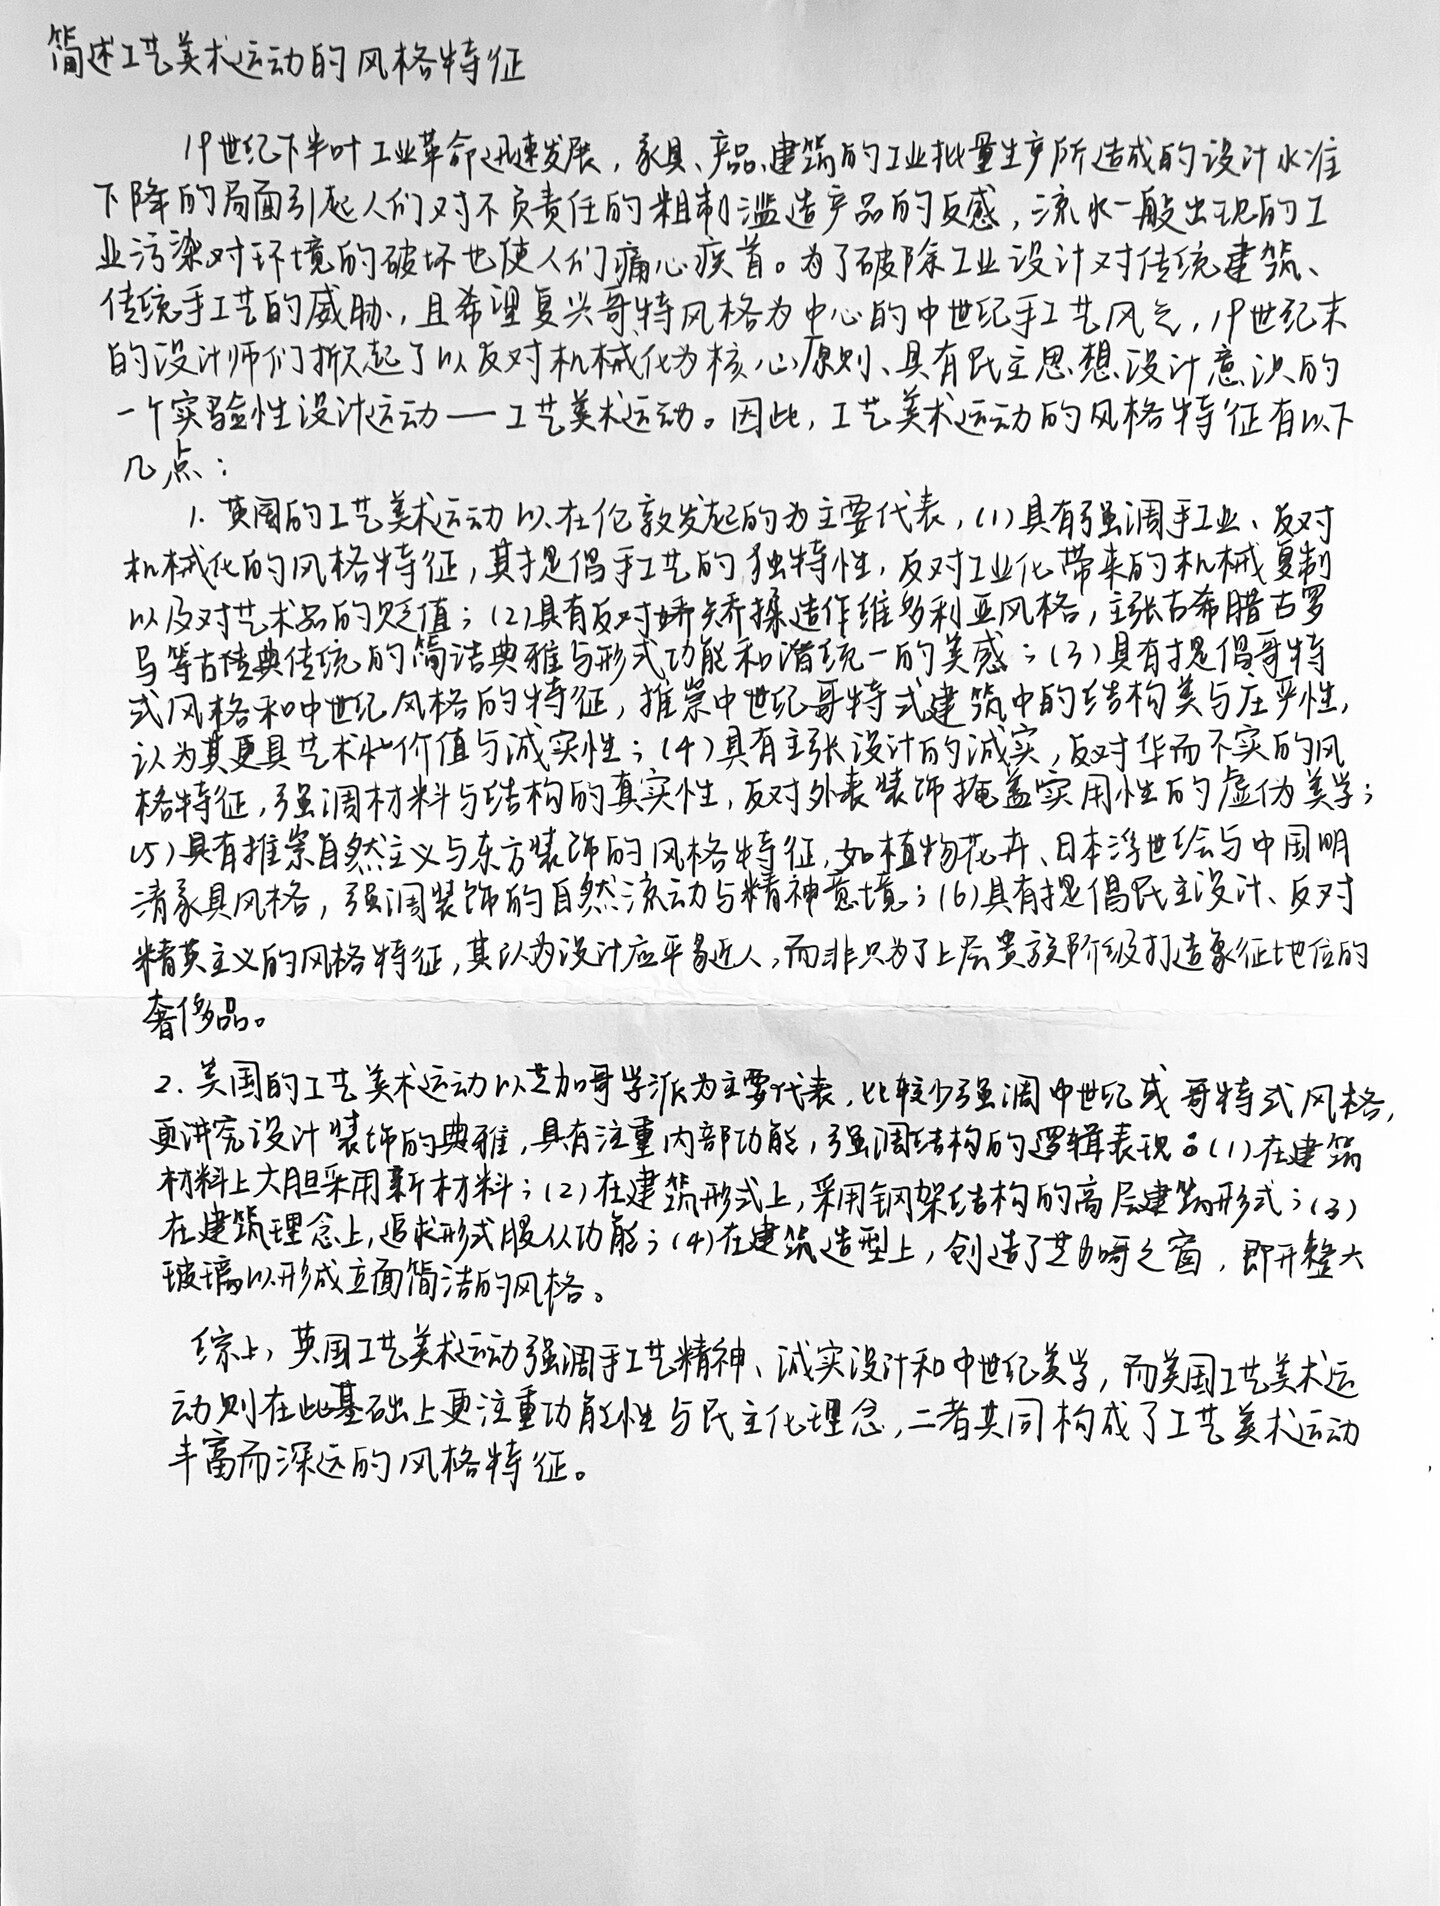 简述工艺美术运动的风格特征
19世纪下半叶工业革命迅速发展，家具、产品、建筑的工业批量生产所造成的设计水准
下降的局面引起人们对不负责任的粗制滥造产品的反感，流水一般出现的工
业污染对环境的破坏也使人们痛心疾首。为了破除工业设计对传统建筑、
传统手工艺的威胁，且希望复兴哥特风格为中心的中世纪手工艺风气，19世纪末
的设计师们掀起了以反对机械化为核心原则、具有民主思想设计意识的
一个实验性设计运动——工艺美术运动。因此，工艺美术运动的风格特征有以下
几点：
1. 英国的工艺美术运动以在伦敦发起的为主要代表，(1)具有强调手工业、反对
机械化的风格特征，其提倡手工艺的独特性，反对工业化带来的机械复制
以及对艺术品的贬值；(2)具有反对矫揉造作维多利亚风格，主张古希腊古罗
马等古典传统的简洁典雅与形式功能和谐统一的美感；(3)具有提倡哥特
式风格和中世纪风格的特征，推崇中世纪哥特式建筑中的结构美与庄严性，
认为其更具艺术价值与诚实性；(4)具有主张设计的诚实，反对华而不实的风
格特征，强调材料与结构的真实性，反对外表装饰掩盖实用性的虚伪美学；
(5)具有推崇自然主义与东方装饰的风格特征，如植物花卉、日本浮世绘与中国明
清家具风格，强调装饰的自然流动与精神意境；(6)具有提倡民主设计、反对
精英主义的风格特征，其认为设计应平易近人，而非只为了上层贵族阶级打造象征地位的
奢侈品。
2. 美国的工艺美术运动以芝加哥学派为主要代表，比较少强调中世纪或哥特式风格，
更讲究设计装饰的典雅，具有注重内部功能，强调结构的逻辑表现。(1)在建筑
材料上大胆采用新材料；(2)在建筑形式上，采用钢架结构的高层建筑形式；(3)
在建筑理念上，追求形式服从功能；(4)在建筑造型上，创造了芝加哥之窗，即开整大
玻璃以形成立面简洁的风格。
综上，英国工艺美术运动强调手工艺精神、诚实设计和中世纪美学，而美国工艺美术运
动则在此基础上更注重功能性与民主化理念，二者共同构成了工艺美术运动
丰富而深远的风格特征。